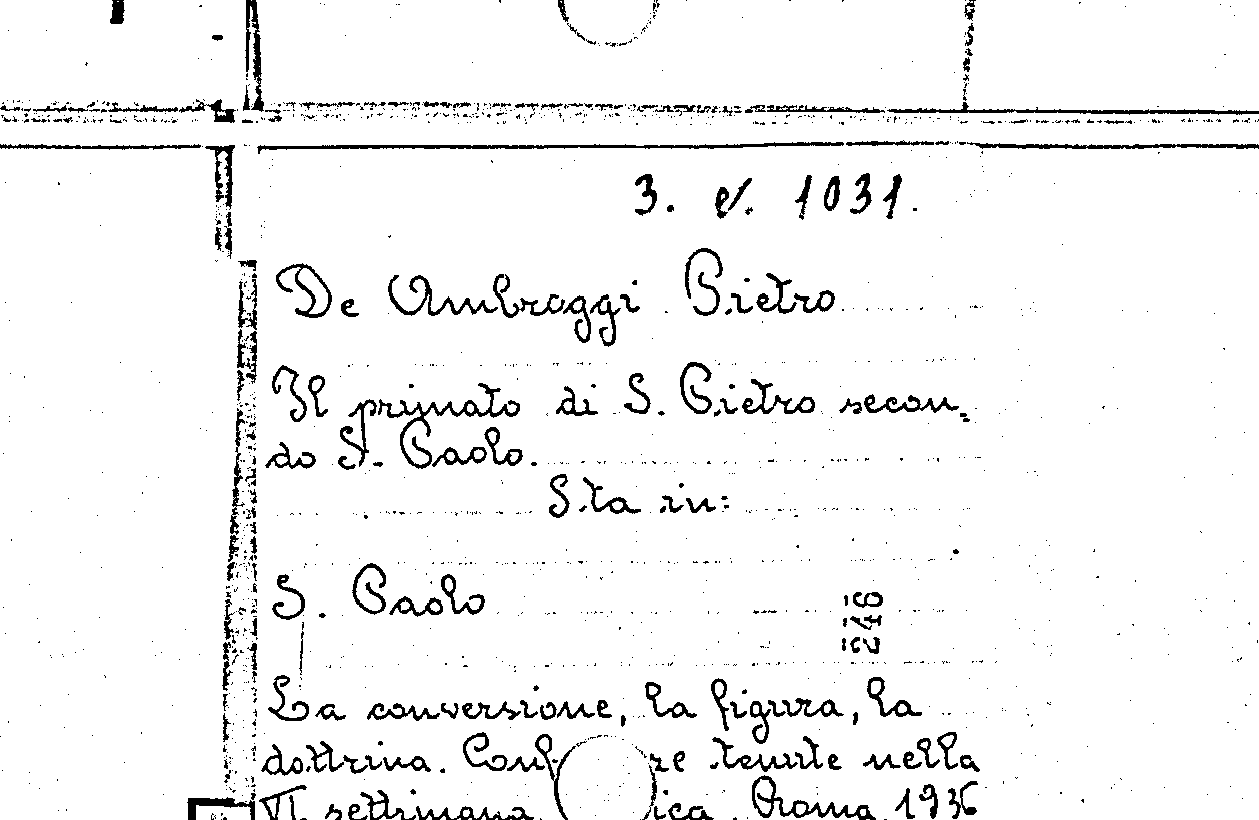 3. v. 1031.
De Ambroggi Pietro
Il primato di S. Pietro secon=
do S. Paolo.
Sta in:
S. Paolo
246
La conversione, la figura, la
dottrina. Conf re tenute nella
VI settimana ica. Roma 1936